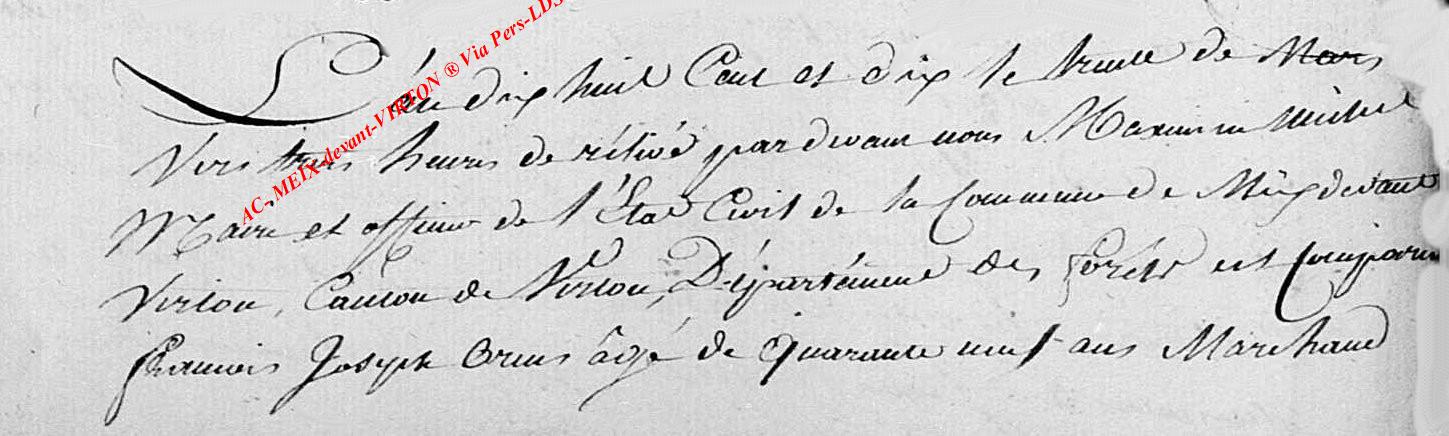 L'an dix huit Cent et dix le trente de Mars
Vers trois heures de rélivé par devant nous Maximin Michel
Maire et officier de l'État Civil de la Commune de Meix devant
Virton, Canton de Virton, Département des forêts est Comparu
François Joseph âgé de Quarante neuf ans Marchand
AC-MEIX-devant-VIRTON ® Via Pers-LDS